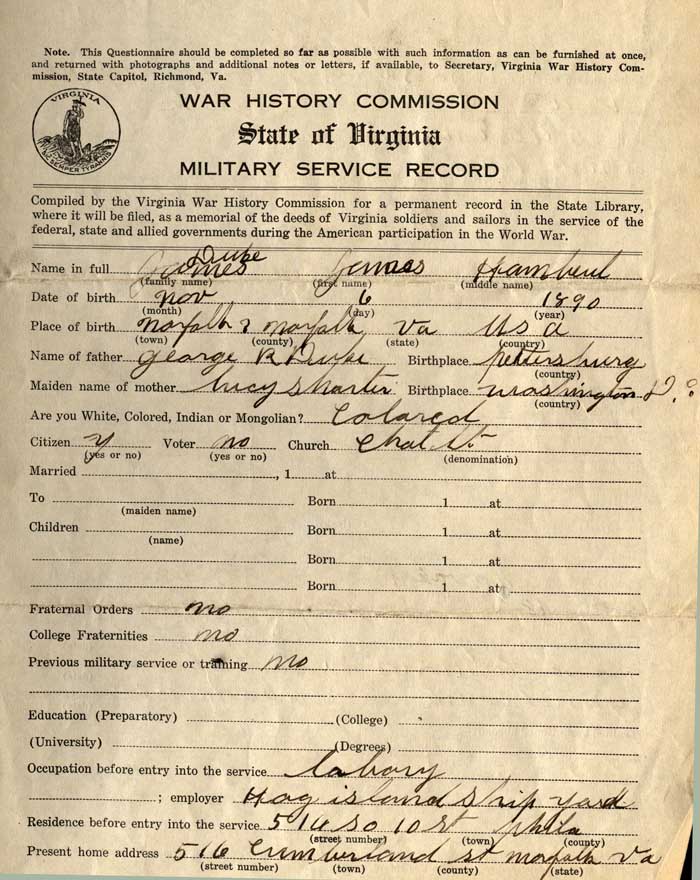 Note. This Questionnaire should be completed so far as possible with such information as can be furnished at once,
and returned with photographs and additional notes or letters, if available, to Secretary, Virginia War History Com-
mission, State Capitol, Richmond, Va.
VIRGINIA
SIC SEMPER TYRANNIS
WAR HISTORY COMMISSION
State of Virginia
MILITARY SERVICE RECORD
Compiled by the Virginia War History Commission for a permanent record in the State Library,
where it will be filed, as a memorial of the deeds of Virginia soldiers and sailors in the service of the
federal, state and allied governments during the American participation in the World War.
Duke
Name in full James James
(family name) (first name) (middle name)
Date of birth nov 6 1890
(month) (day) (year)
Place of birth norfolk norfolk va us a
(town) (county) (state) (country)
Name of father george R Duke Birthplace pettersburg
(country)
Maiden name of mother lucy Birthplace washington D. c
(country)
Are you White, Colored, Indian or Mongolian? Colored
Citizen y Voter no Church
(yes or no) (yes or no) (denomination)
Married , 1 at
To Born 1 at
(maiden name)
Children Born 1 at
(name)
Born 1 at
Born 1 at
Fraternal Orders no
College Fraternities no
Previous military service or training no
Education (Preparatory) (College)
(University) (Degrees)
Occupation before entry into the service labory
; employer Hog island ship yard
Residence before entry into the service 516 so 10 st phila
(street number) (town) (county)
Present home address 516 Cumberland st norfolk va
(street number) (town) (county) (state)